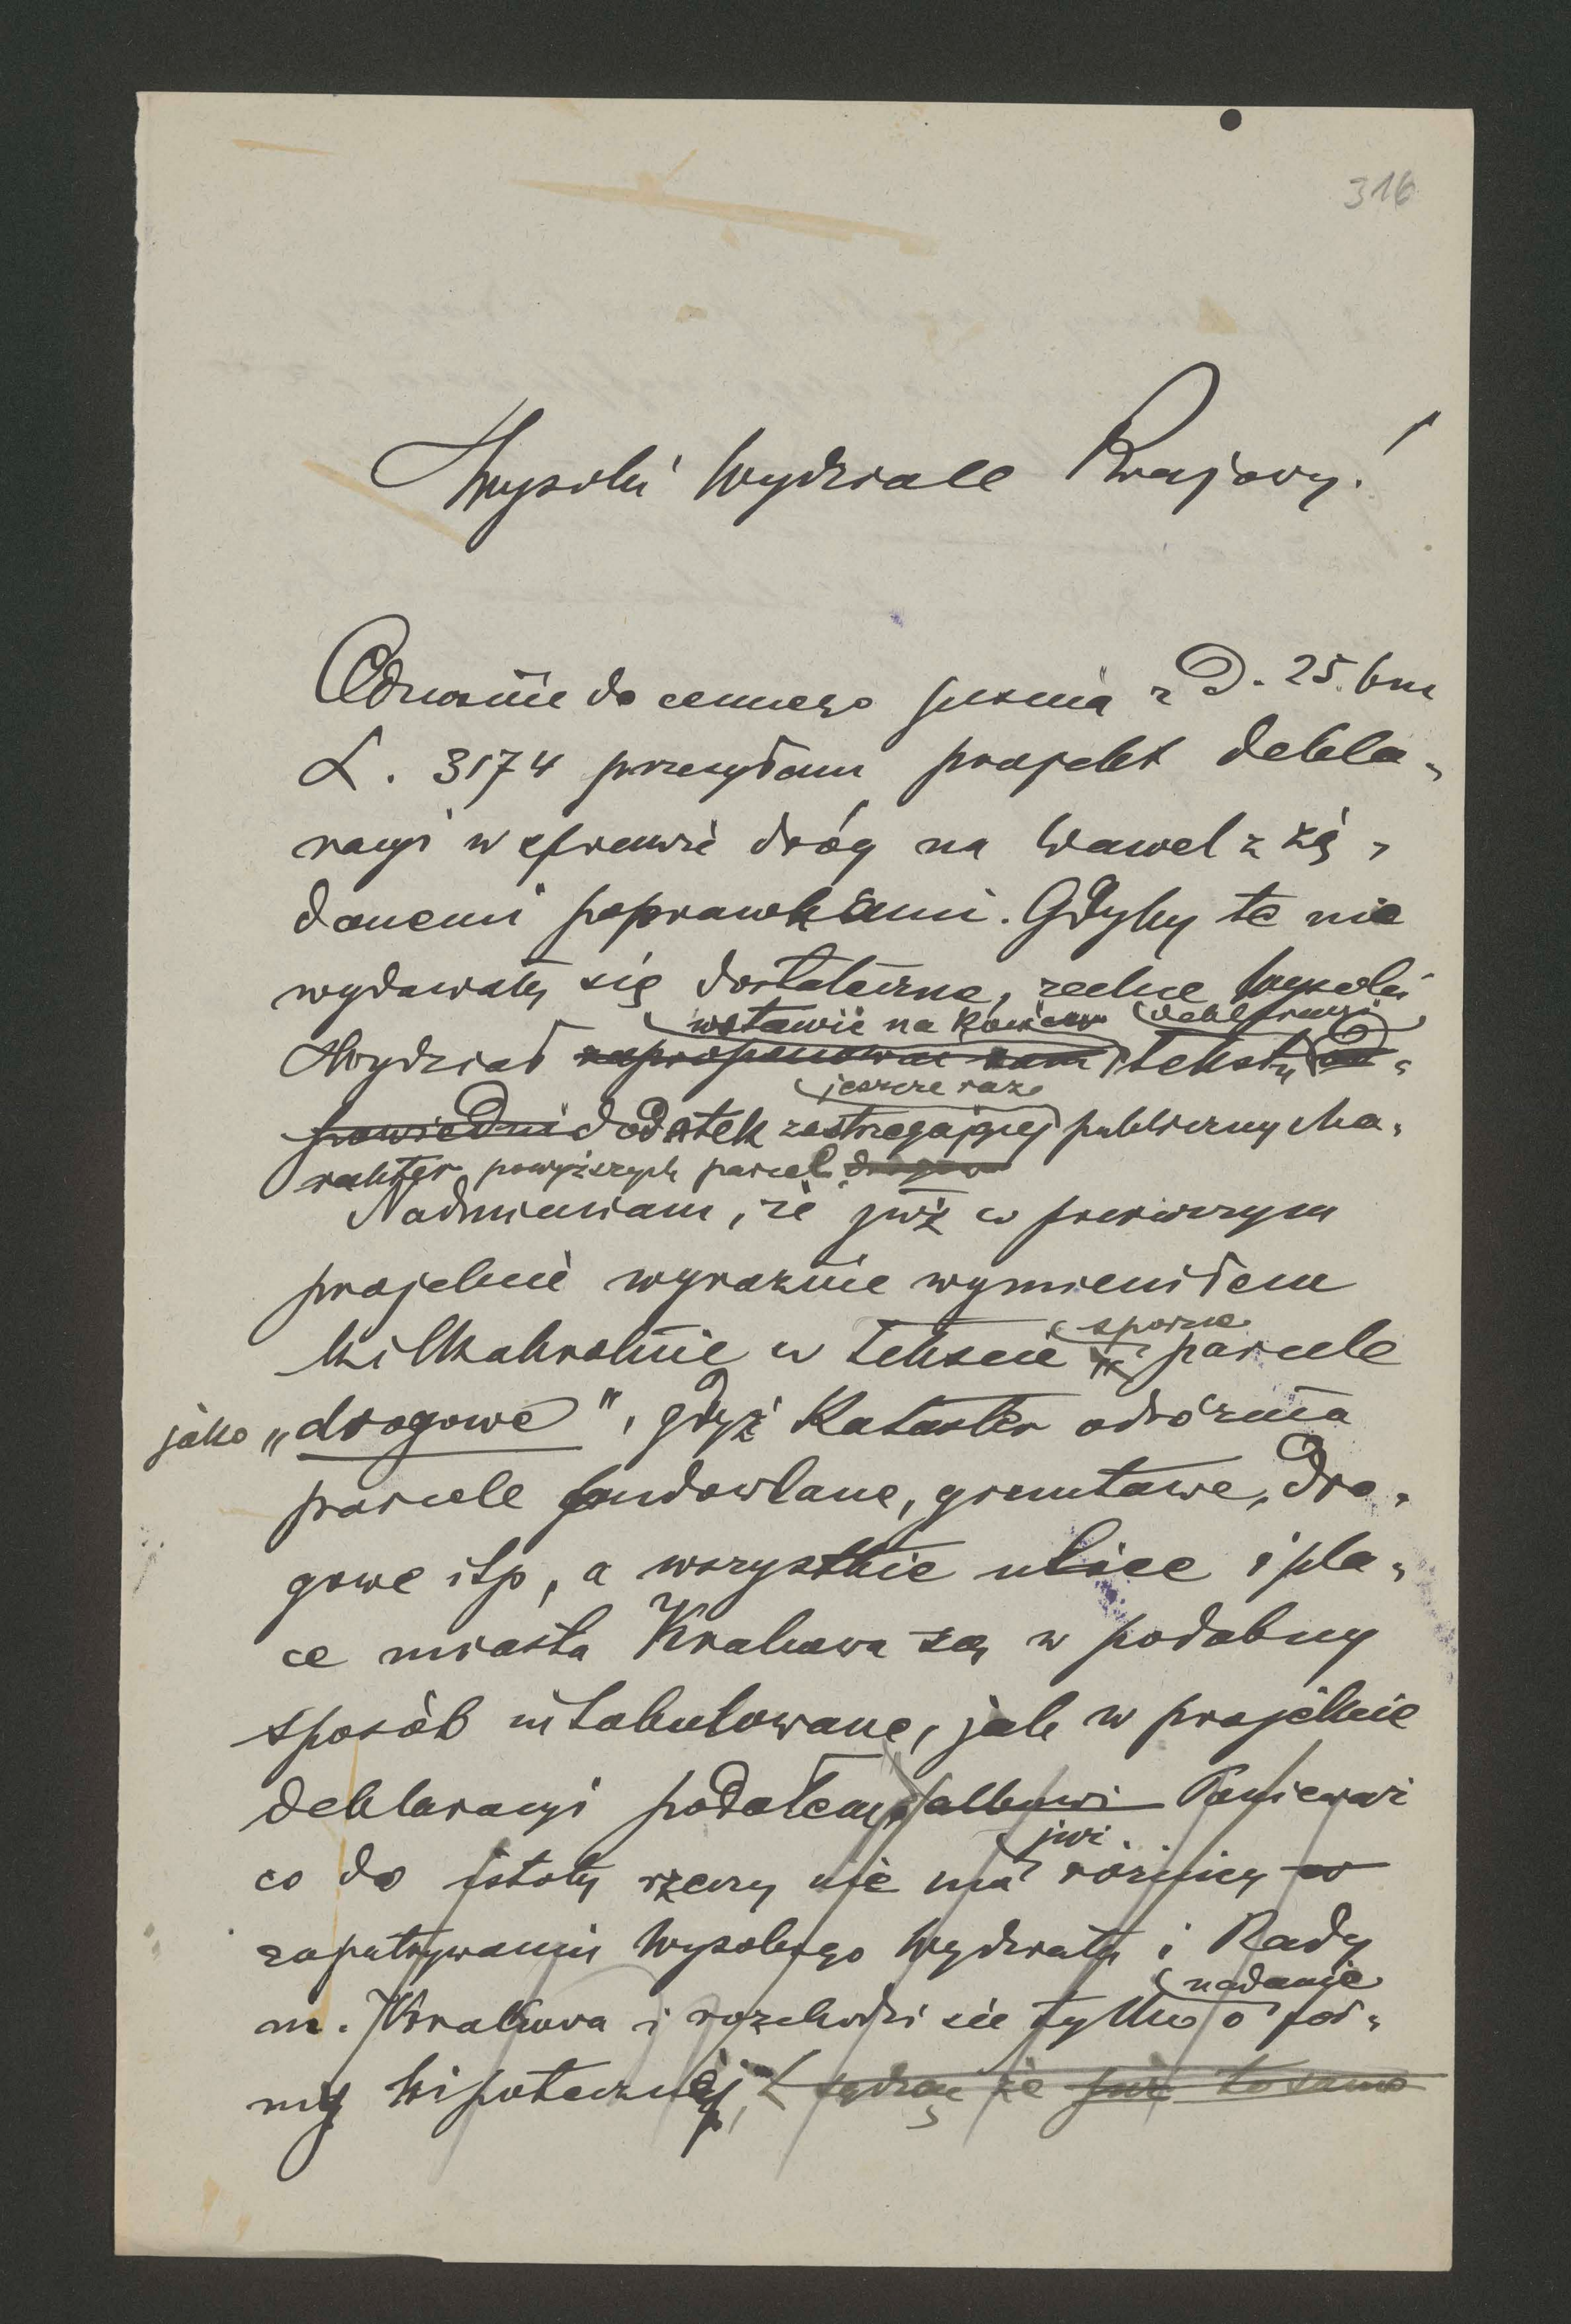 316
Wysoki Wydziale Krajowy!
Odnośnie do cennego pisma z D. 25. bm
L. 3174 przesyłam projekt dekla-
racyi w sprawie dróg na Wawel z żą-
danemi poprawkami. Gdyby te nie
wydawały się dostateczne, zechce Wysoki
wstawić na końcu deklaracyi
Wydział zaproponować sam tekst od-
jeszcze raz
powiedni dodatek zastrzegający publiczny cha-
rakter powyższych parcel
Nadmieniam, że już w pierwszym
projekcie wyraźnie wymieniłem
sporne
kilkakrotnie w tekscie parcele
jako „drogowe", gdyż Kataster odróżnia
parcele budowlane, gruntowe, dro-
gowe itp, a wszystkie ulice i pla-
ce miasta Krakowa są w podobny
sposób intabulowane, jak w projekcie
deklaracyi podałem, albowi Ponieważ
już
co do istoty rzeczy nie ma różnicy w
zapatrywaniu Wysokiego Wydziału i Rady
nadanie
m. Krakowa i rozchodzi się tylko o for-
my hipotecznej, sądzę że już to samo